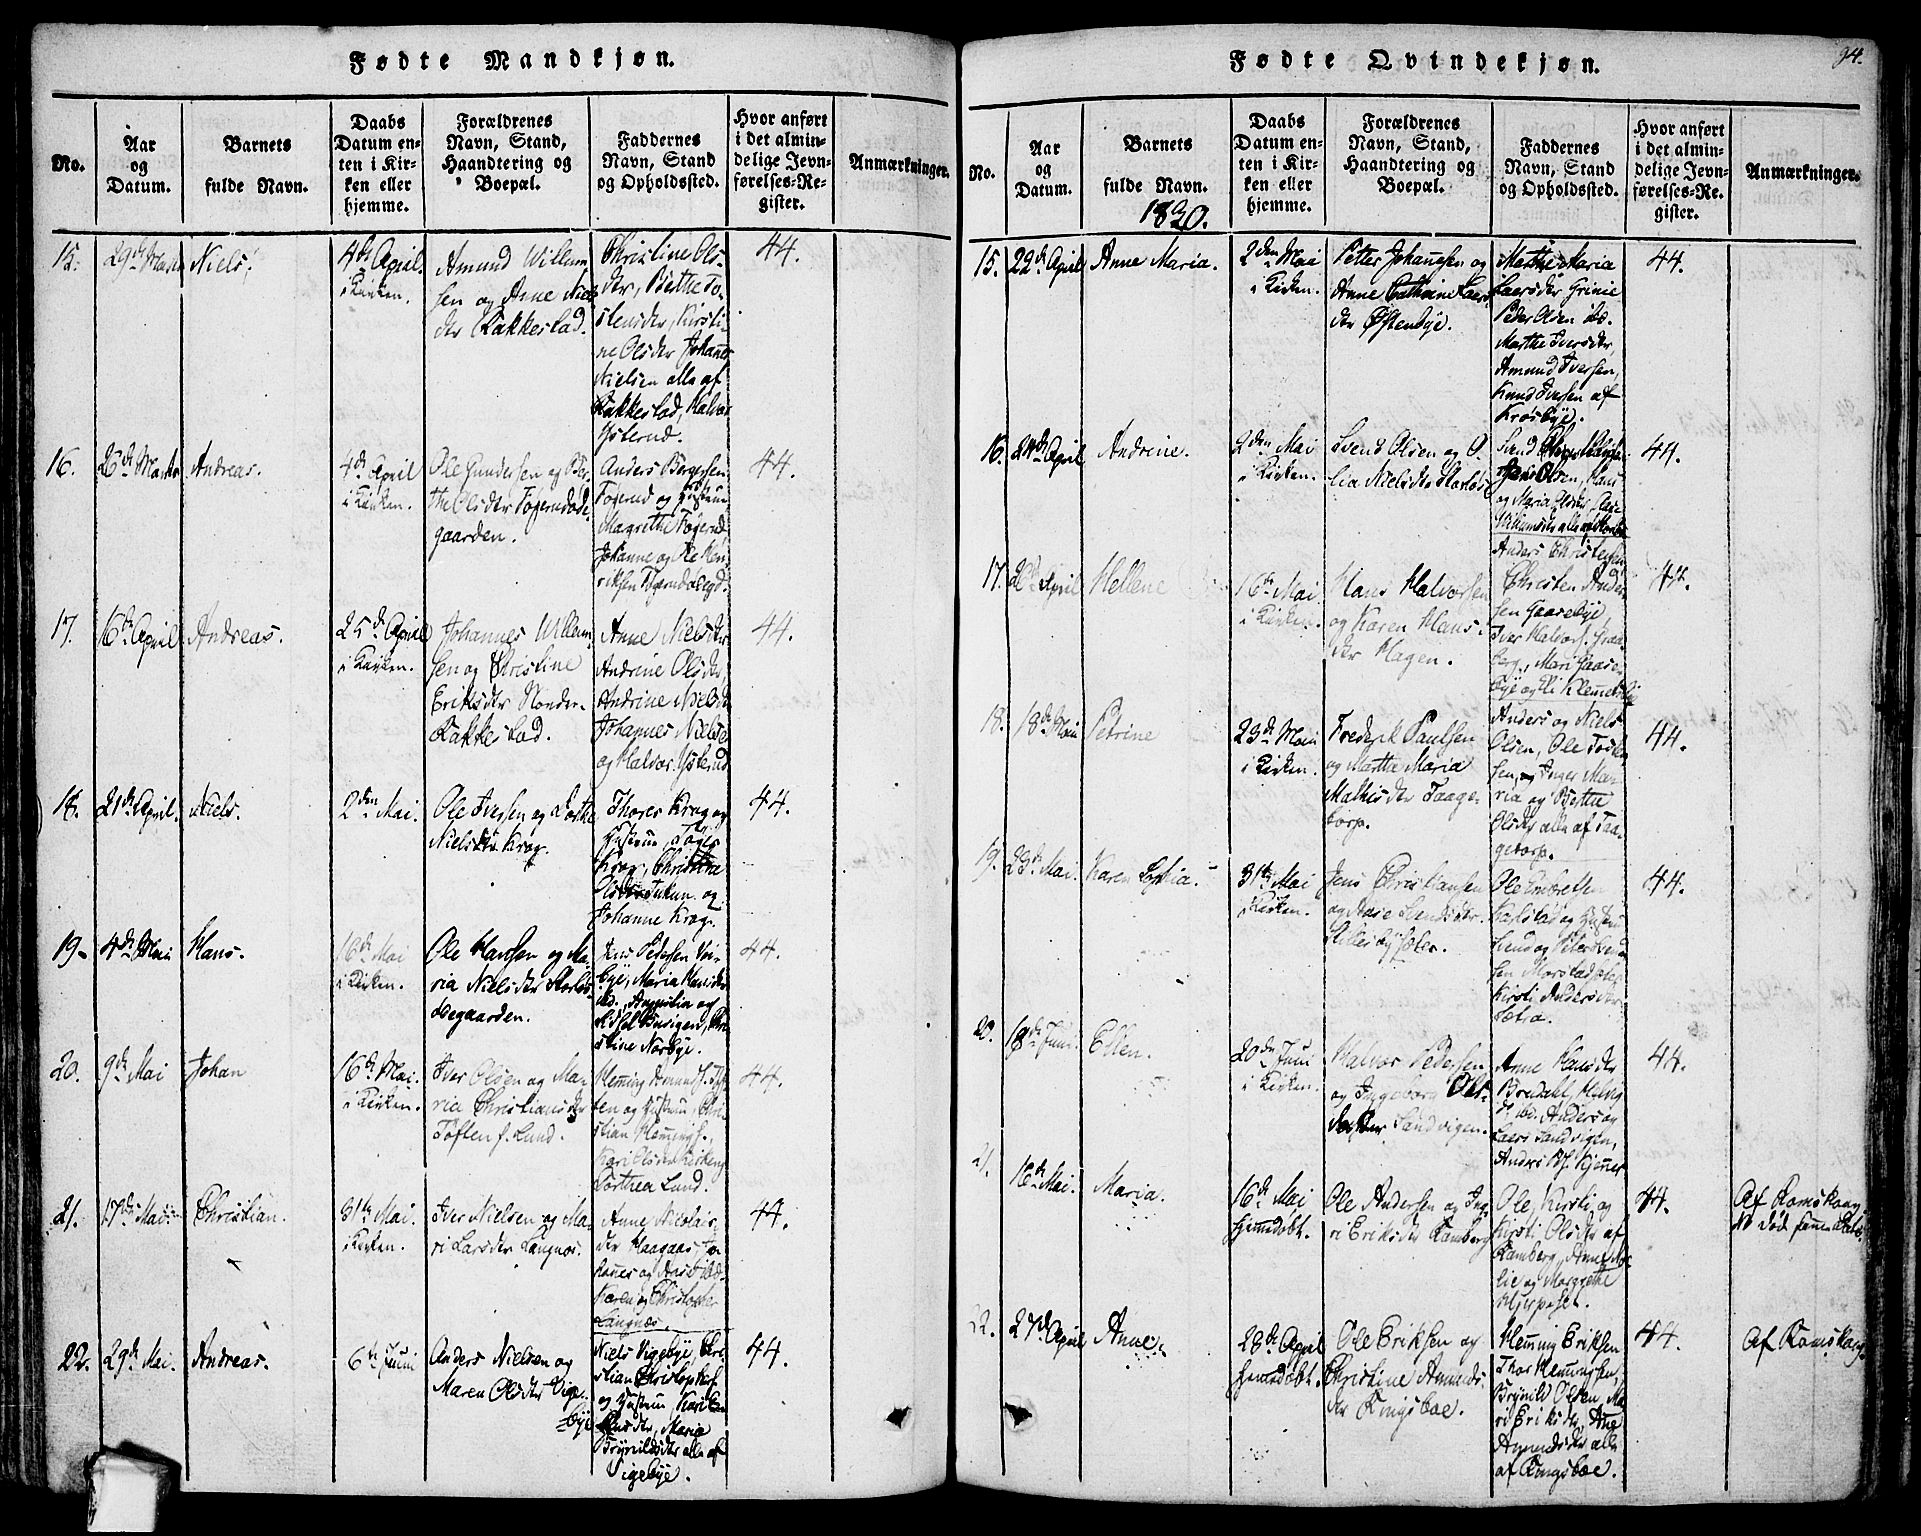 Fødte Mandkjøn.
No.
Aar
og
Datum.
Barnets
fulde Navn.
Daabs
Datum en-
ten i Kir-
ken eller
hjemme.
Forældrenes
Navn, Stand,
Haandtering og
Boepæl.
Faddernes
Navn, Stand
og Opholdssted.
Hvor anført
i det almin-
delige Jevn-
førelses-Re-
gister.
Anmærkninger.
15.
29de Marts
Niels.
4de April
i Kirken.
Amund Willum-
sen og Anne Niels
der Rakkestad.
Christine Ols-
der, Berthe To-
stensder, Kirsti-
ne Olsder Johannes
Nielsen alle af
Rakkestad, Halvor
Ysterud.
44.
16.
26de Marts
Andreas.
4de April
i Kirken.
Ole Gundersen og Ber-
the Olsder Togerudøde-
gaarden.
Anders Bergersen
Togerud og Hustrue
Magrethe Togerud
Johanne og Ole Hen-
riksen Togerudødegd.
44.
17.
16de April
Andreas.
25de April
i Kirken.
Johannes Willum-
sen og Christine
Eriksder Nordre-
Rakkestad.
Anne Nielsder
Andrine Olsder,
Andrine Nielsd
Johannes Nielse
og Halvor Ysterud
44.
18.
21de April.
Niels.
2den Mai.
Ole Iversen og Dorthe
Nielsder Krog.
Thores Krog og
Hustrue,
Krog, Christine
Olsder og
Johanne Krog.
44.
19.
4de Mai
Hans.
16de Mai
i Kirken.
Ole Hansen og Ma-
ria Nielsder Storløs
ødegaarden.
Jens Pedersen Vei-
bye, Maria Hansder
ibd. og
stine Norbye.
44.
20.
9de Mai
Johan
16de Mai.
i Kirken.
Iver Olsen og Ma-
ria Christiansder
Toften f. Lund.
Hemming Amunds. Tof-
ten og Hustrue, Chri-
stian Hemmings.,
Kari Olsder
Dorthea Lund.
44.
21.
17de Mai
Christian.
31te Mai.
i Kirken.
Iver Nielsen og Ma-
ri Larsder Langnæs.
Anne Nicolais-
der Haagaas, Jo-
hannes og ibd.
Karen og Christopher
Langnæs.
44.
22.
29de Mai.
Andreas.
6te Juni
Anders Nielsen og
Maren Olsder Vige-
bye
Niels Vigebye, Chri-
stian Christophers.
og Hustrue, Kari
Maria
Brynildsder alle af
Vigebye.
44.
Fødte Qvindekjøn.
94.
No.
Aar
og
Datum.
Barnets
fulde Navn.
1830.
Daabs
Datum en-
ten i Kir-
ken eller
hjemme.
Forældrenes
Navn, Stand,
Haandtering og
Boepæl.
Faddernes
Navn, Stand
og Opholdssted.
Hvor anført
i det almin-
delige Jevn-
førelses-Re-
gister.
Anmærkninger.
15.
22de April
Anne Maria.
2den Mai
i Kirken.
Petter Johannesen og
Anne Cathrine Laers
der Østenbye.
Mathe Maria
Laersder Grinie
Peder Olsen ibd.
Marthe Iversder,
Amund Iversen,
Knud Iversen af
Krosbye.
44.
16.
24de April
Andrine.
2den Mai
i Kirken.
Svend Olsen og O-
lia Nielsder Storløs
Svend
Olsen, Hans
og Maria Olsder,
44.
17.
26de April
Hellene
16de Mai
i Kirken.
Hans Halvorsen
og Karen Hans-
der Hagen.
Anders Christensen
Christen Ander-
sen Gaasebye,
Iver Halvors.
berg, Mari Gaase-
bye og
44.
18.
18de Mai
Petrine
23de Mai
i Kirken.
Frederik Paulsen
og Marthe Maria
Mathisder Taage-
torp.
Anders og Niels
Olsen, Ole
sen, og Inger Ma-
ria og Berthe
Olsder alle af Taa-
getorp.
44.
19.
23de Mai.
Karen Sophia.
31te Mai
i Kirken.
Jens Christiansen
og Anne Svendsder
Lillebysæter.
Ole Embretsen
Karlstad og Hustrue
Svend og Peter Svend-
sen
Kirsti Andersder
Sætra.
44.
20.
18de Juni
Ellen.
20de Juni
i Kirken.
Halvor Pedersen
og Ingeborg Ols-
datter Sandvigen.
Anne Hansder
Bredahl,
ibd. Anders og
Laers Sandvigen,
Anders
44.
21.
16de Mai.
Maria.
16de Mai
hjemmedøbt.
Ole Andersen og Ing-
ri Eriksder Ramberg
Ole, Kirsti og
Kirsti Olsder af
Ramberg, Anne Ma-
rie og Margrethe
Kjerpeset.
44.
Af Romskoug
NB død samme Dato.
22.
27de April
Anne.
28de April
hjemmedøbt.
Ole Eriksen og
Christine Amunds-
der Kingsboe.
Hemming Eriksen
Thor Hemmingsen,
Brynild Olsen, Ma-
ri Eriksder, Anne
Amundsder alle
af Kingsboe.
44.
Af Romskoug